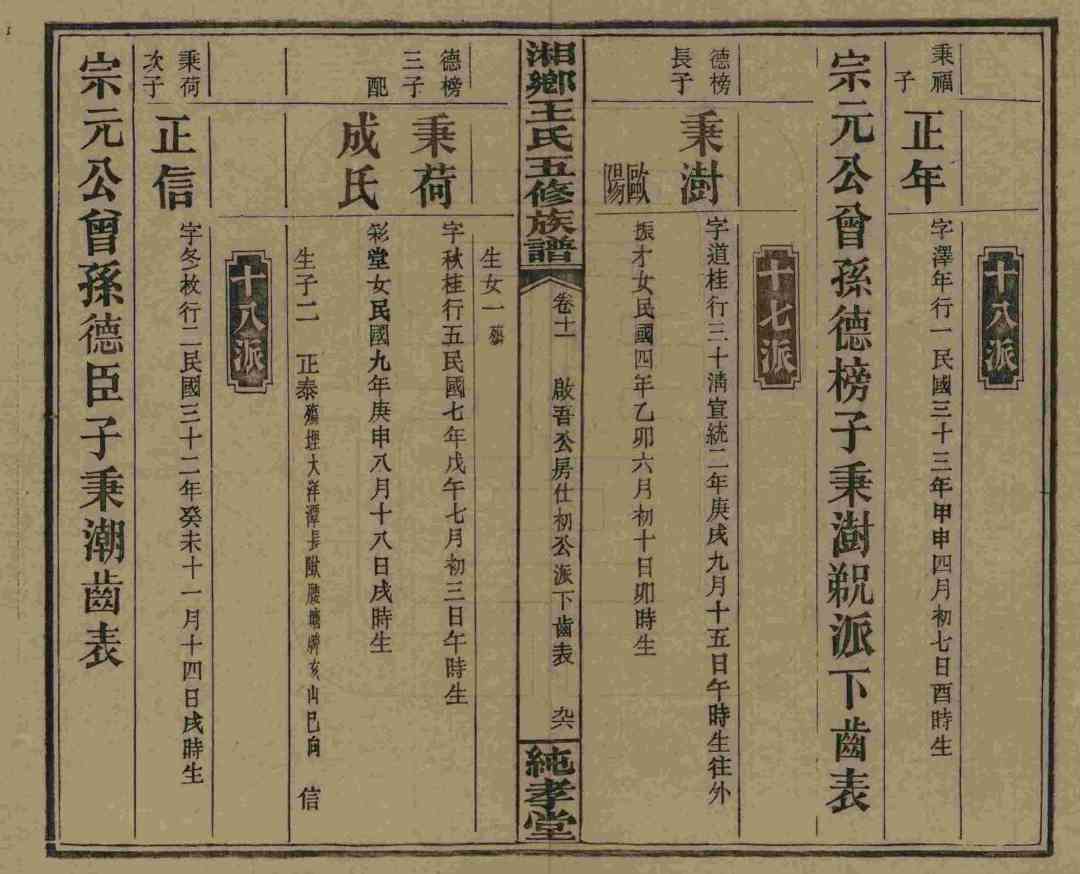 十八派
秉福子
正年
字澤年行一民國三十三年甲申四月初七日酉時生
宗元公曾孫德榜子秉澍派下齒表
十七派
德榜長子
秉澍
字道桂行三十清宣統二年庚戌九月十五日午時生往外
歐陽
振才女民國四年乙卯六月初十日卯時生
湘鄉王氏五修族譜
卷十一
啟吾公房仕初公派下齒表
純孝堂
生女一殤
德榜三子
秉荷
字秋桂行五民國七年戊午七月初三日午時生
配
成氏
彩堂女民國九年庚申八月十八日戌時生
生子二 正泰殤埋大洋潭長 亥山巳向 信
十八派
秉荷次子
正信
字冬枚行二民國三十二年癸未十一月十四日戌時生
宗元公曾孫德臣子秉潮齒表